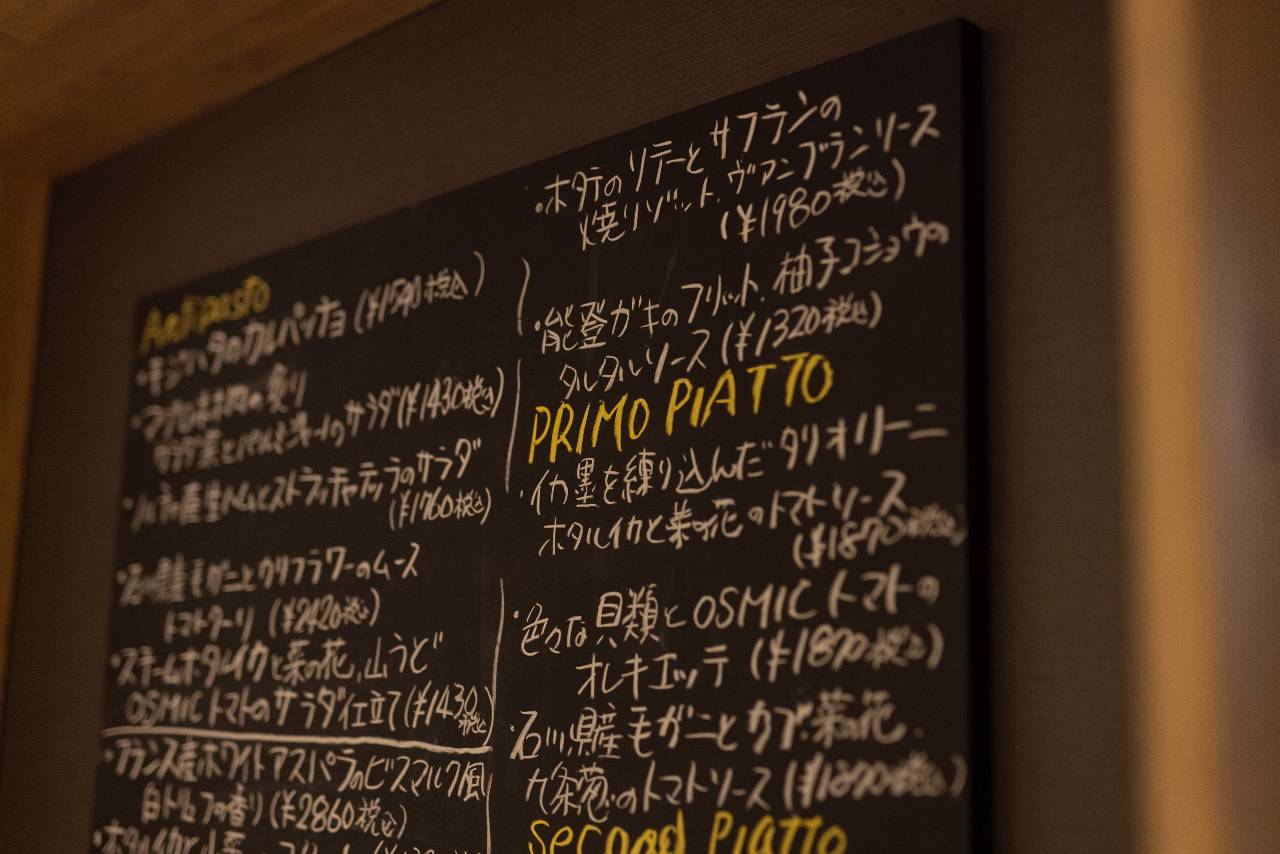 Antipasto
・キジハタのカルパッチョ (¥1540税込)
・マグロホホ肉の炙り
とパルミジャーノのサラダ(¥1430税込)
産生ハムとストラッチャテッラのサラダ
(¥1760税込)
・石川県産毛ガニとカリフラワーのムース
トマトクーリ (¥2420税込)
・スチームホタルイカと菜の花,山うど
OSMICトマトのサラダ仕立て(¥1430税込)
・フランス産ホワイトアスパラのビスマルク風
白トリュフの香り(¥2860税込)
・ホタルイカと山菜
・ホタテのソテーとサフランの
焼リゾット,ヴァンブランソース
(¥1980税込)
・能登ガキのフリット,柚子コショウの
タルタルソース (¥1320税込)
PRIMO PIATTO
・イカ墨を練り込んだタリオリーニ
ホタルイカと菜の花のトマトソース
(¥1870税込)
・色々な貝類とOSMICトマトの
オレキエッテ (¥1870税込)
・石川県産毛ガニとカブ,菜の花,
九条葱のトマトソース (税込)
Second PIATTO